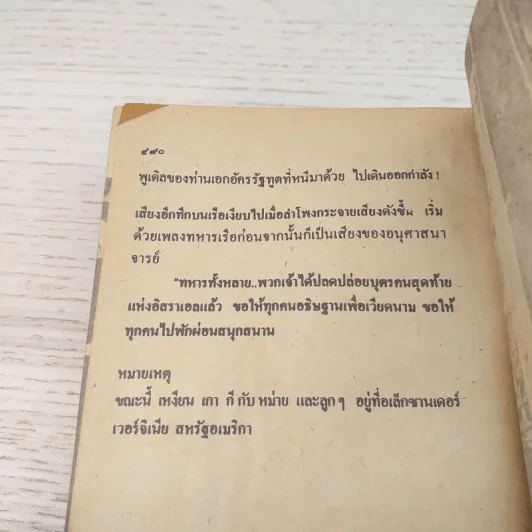 ๔๙๐
พูเดิลของท่านเอกอัครรัฐทูตที่หนีมาด้วย ไปเดินออกกำลัง !
เสียงอึกทึกบนเรือเงียบไปเมื่อลำโพงกระจายเสียงดังขึ้น เริ่ม
ด้วยเพลงทหารเรือก่อนจากนั้นก็เป็นเสียงของอนุศาสนา
จารย์
"ทหารทั้งหลาย..พวกเจ้าได้ปลดปล่อยบุตรคนสุดท้าย
แห่งอิสราเอลแล้ว ขอให้ทุกคนอธิษฐานเพื่อเวียดนาม ขอให้
ทุกคนไปพักผ่อนสนุกสนาน
หมายเหตุ
ขณะนี้ เหงียน เกา กี กับ หม่าย และลูก ๆ อยู่ที่อเล็กซานเดอร์
เวอร์จิเนีย สหรัฐอเมริกา